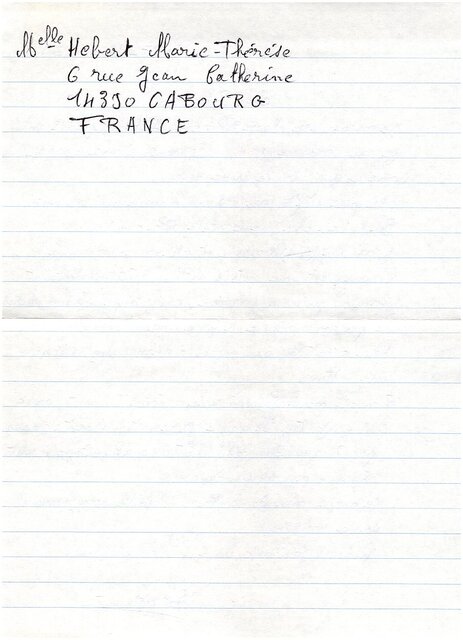 Melle Hebert Marie-Thérèse
6 rue Jean Catherine
14390 CABOURG
FRANCE